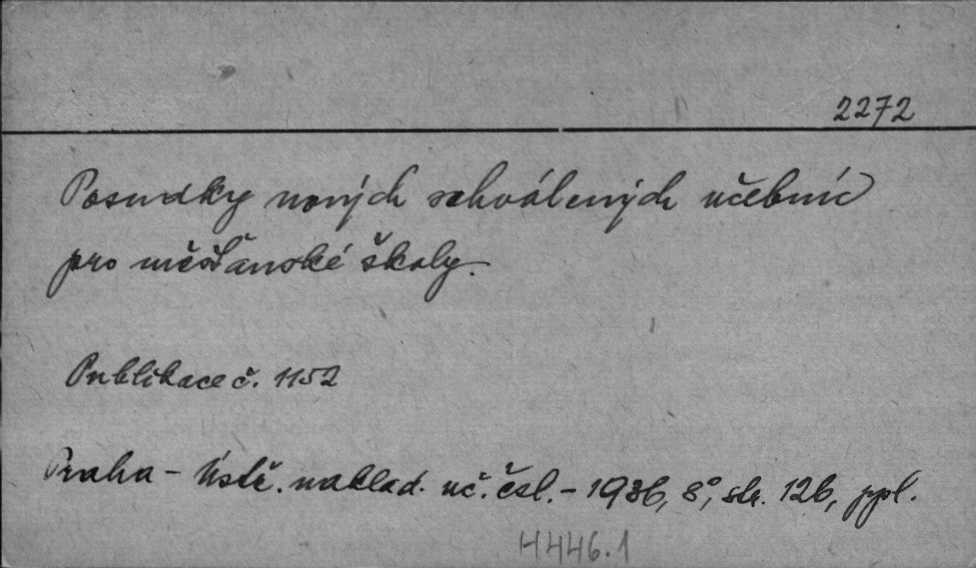 2272
Posudky nových schválených učebnic
pro měšťanské školy.
Publikace č. 1152
Praha - Ústř. naklad. uč. čsl. - 1936, 8°, str. 126, ppl.
H446.1